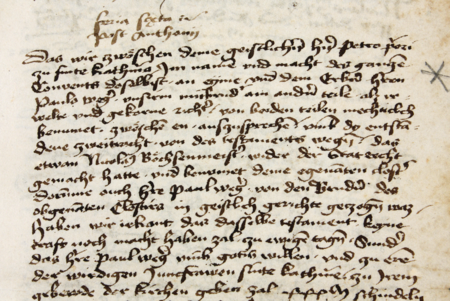 feria sexta
post Anthonii
Das wir zwischen deme geistlichen hern Petro
zu sinte Katherina Im namen und macht des ganczen
Convents doselbist an eyme und dem Erbern heren
Paulo weg unserm am andern teile als
welte und gekorne richter von beiden teilen mechticlich
zwischen en auszusprechen umb dy entstan
dene zweitracht von des testaments wegen das
etwan Nicolaus Bochsenmeister weder der Stat recht
gemacht hatte und deme egenanten closter
dorumme ouch her Paul weg von den Brudern des
obgenanten Closters in geistlich gerichte geczogen waz
haben wir irkant das dasselbe testament keyne
craft noch macht haben zal zu ewigen tagen Sunder
das her Paul weg durch gotis willen und zu eren
der wirdigen Juncfrawen sinte Katherine zu Irem
gebewde der kirchen geben zal